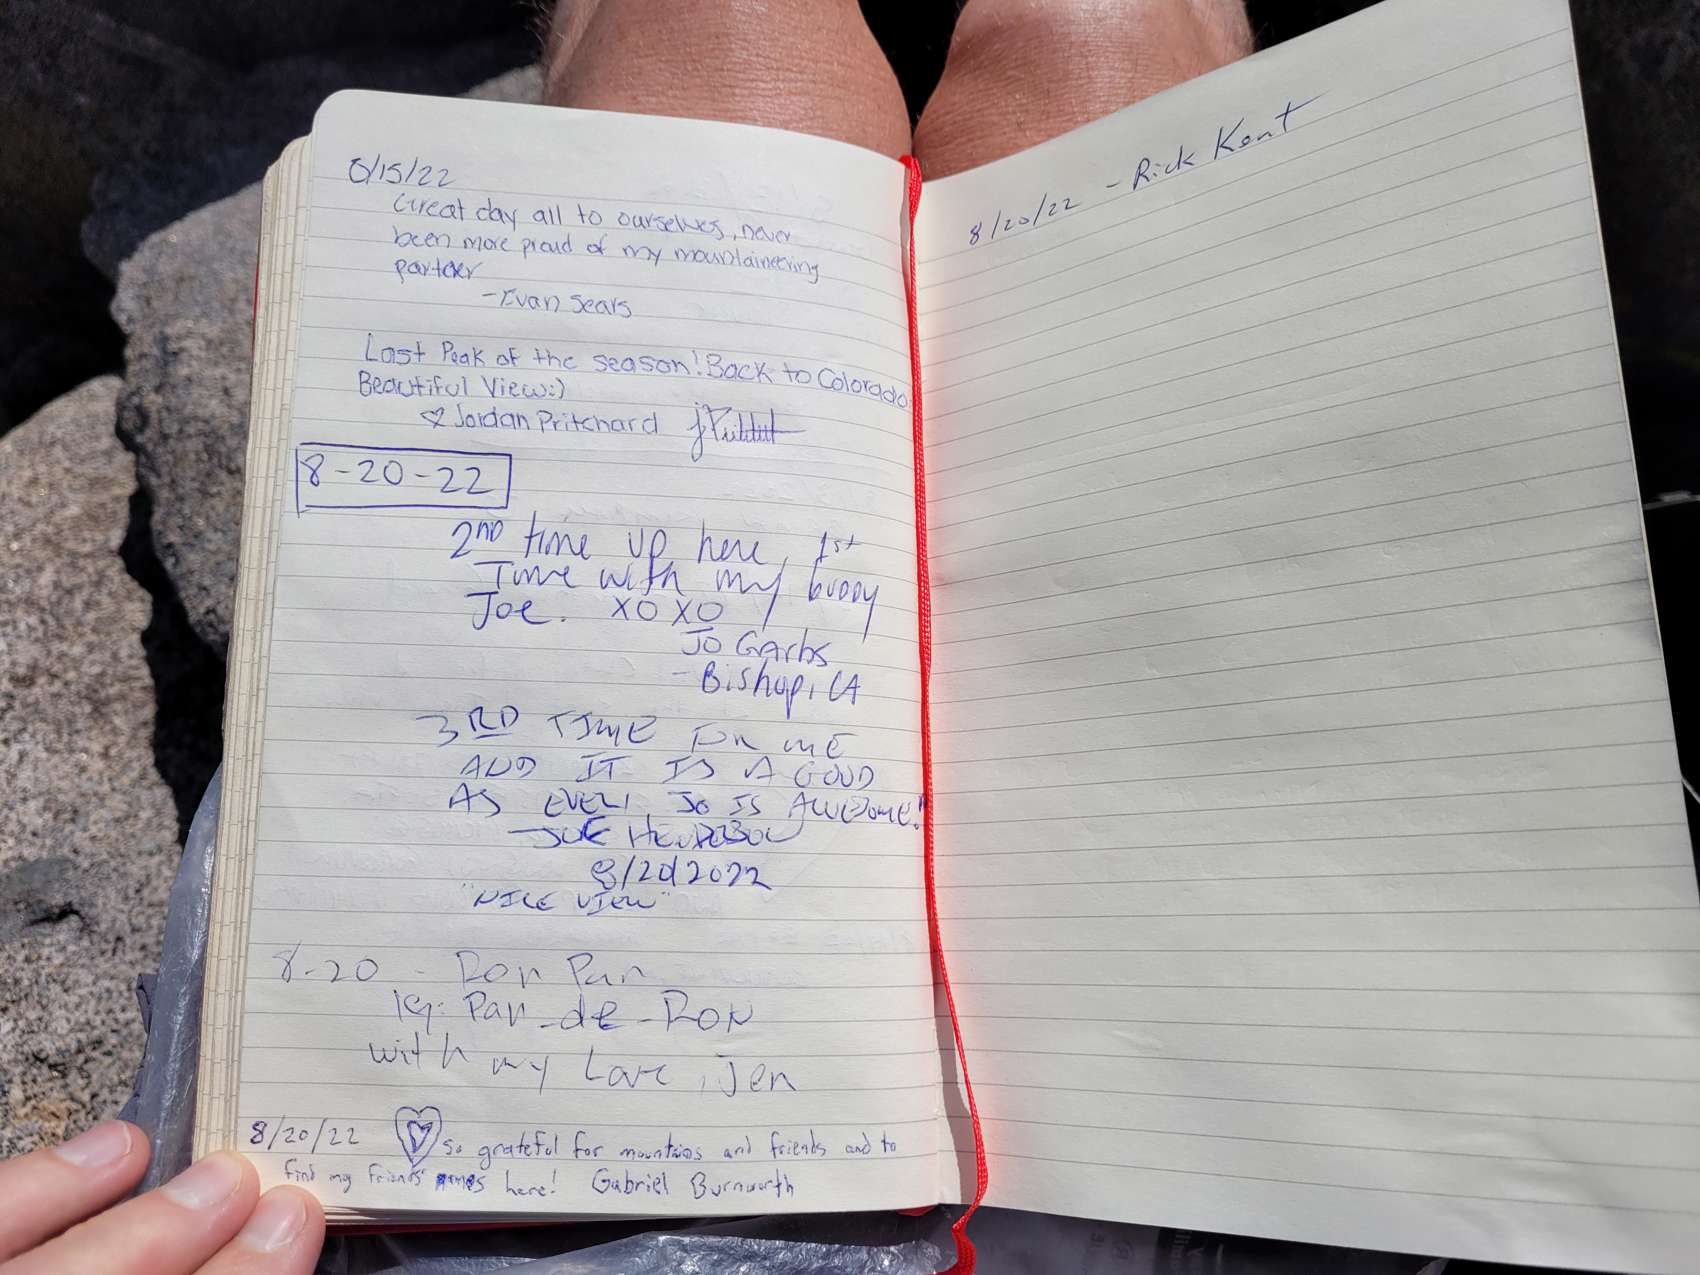 8/15/22
Great day all to ourselves, never
been more proud of my mountaineering
partner
-Evan Sears
Last Peak of the season! Back to Colorado
Beautiful View:)
♡ Jordan Pritchard
8-20-22
2ND time up here, 1st
Time with my buddy
Joe. XOXO
JO GArbs
- Bishop, CA
3RD TIME FOR ME
AND IT IS A GOOD
AS EVER! JO IS AWESOME!
- JOE
8/20/2022
"NICE VIEW"
8-20 - Ron Pan
IG: Pan_de_Ron
with my Love, Jen
8/20/22 ♡ so grateful for mountains and friends and to
find my friends' names here! Gabriel Burnworth
8/20/22 - Rick Kent